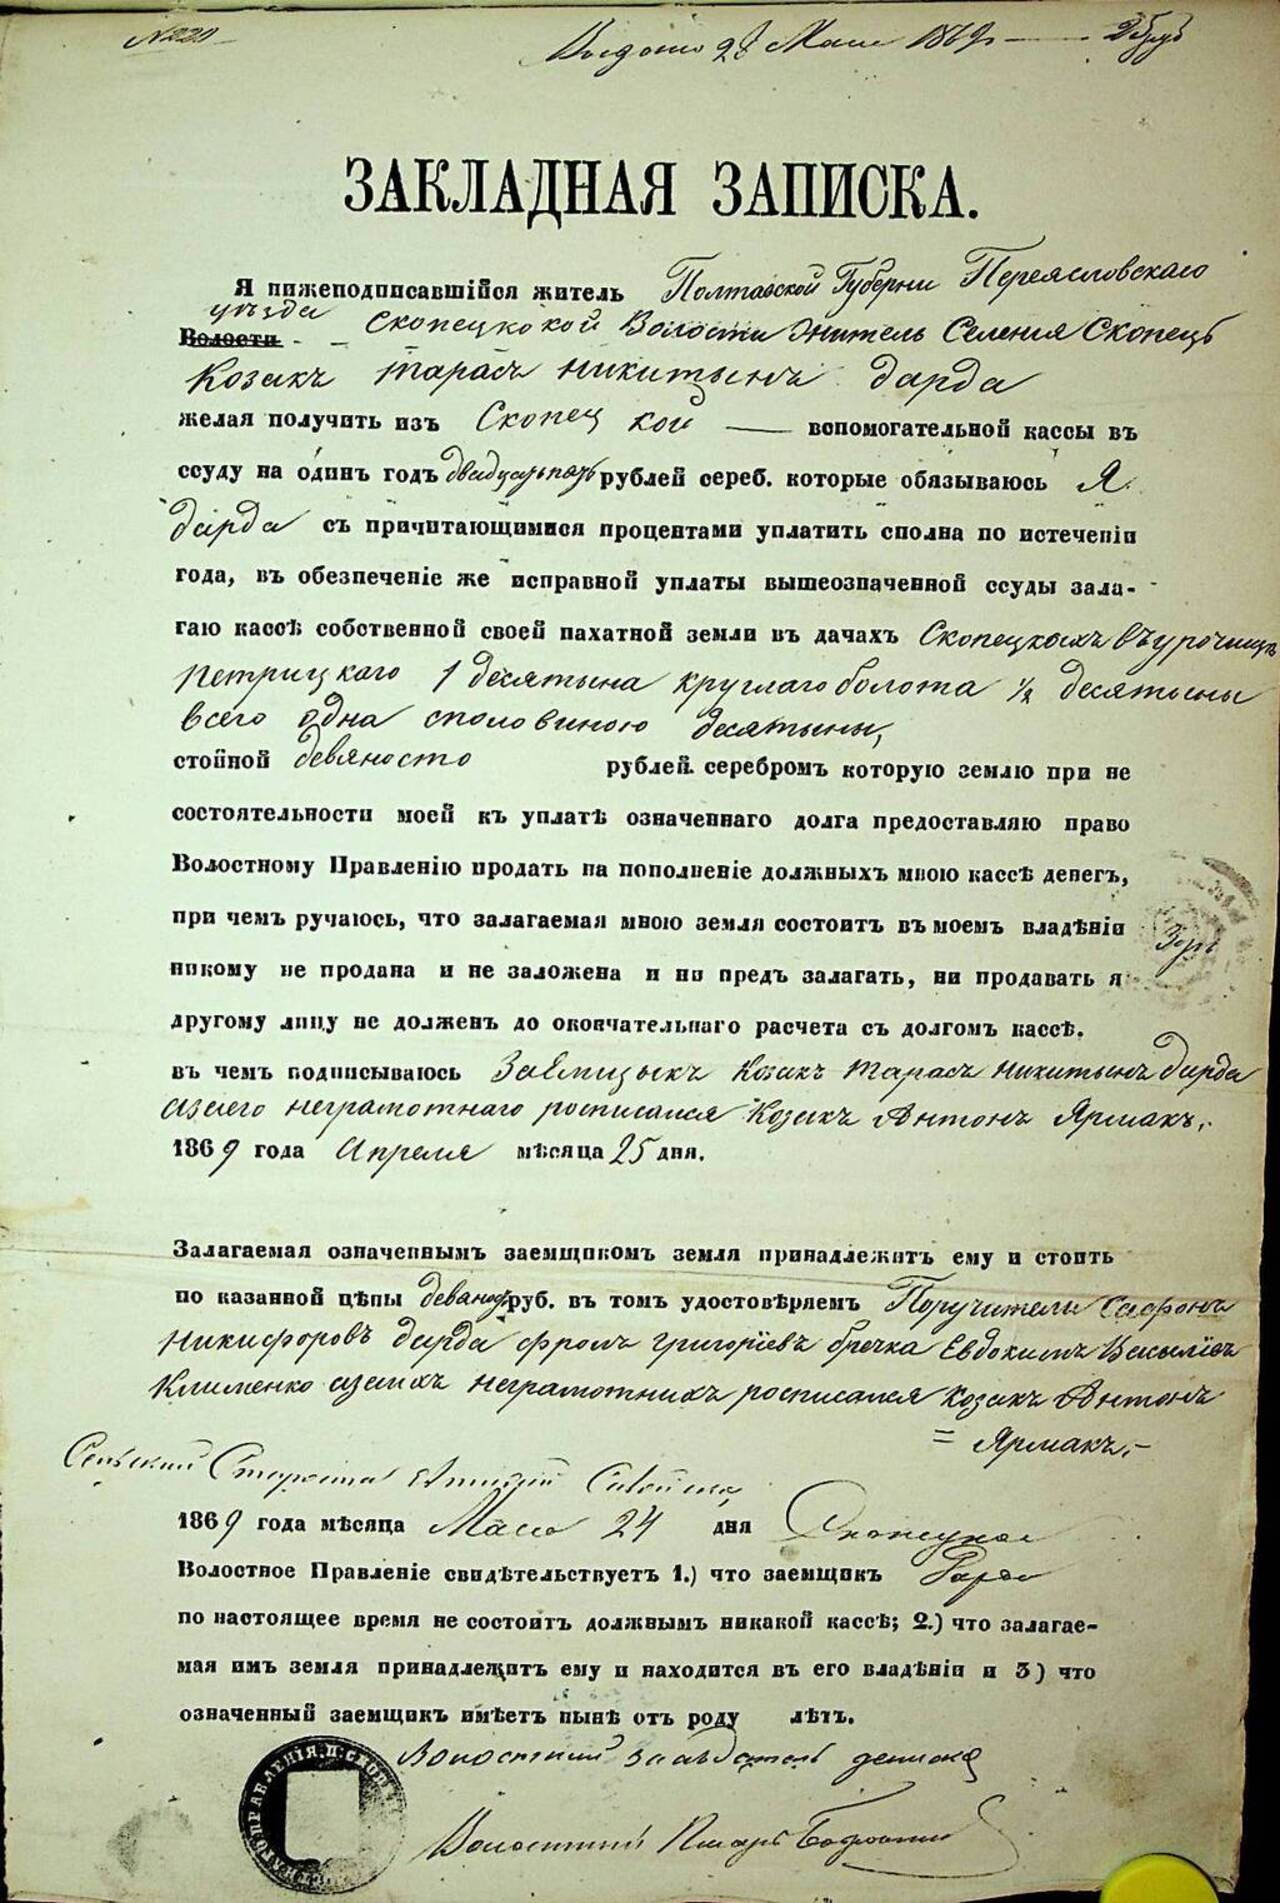 № 220
Выдано 28 Мая 1869 — 25 руб
ЗАКЛАДНАЯ ЗАПИСКА.
Я нижеподписавшійся житель Полтавской Губерни Переясловскаго
уѣзда
Волости - - Скопецкокой Волости житель Селения Скопецъ
Козакъ тарасъ никитынъ дарда
желая получить изъ Скопец кой — вспомогательной кассы въ
ссуду на одинъ годъ двадцатьпять рублей сереб. которые обязываюсь Я
дарда съ причитающимися процентами уплатить сполна по истеченіи
года, въ обезпеченіе же исправной уплаты вышеозначенной ссуды зала-
гаю кассѣ собственной своей пахатной земли въ дачахъ Скопецкыхъ въурочищѣ
петрицкаго 1 десятына круглаго болота 1/2 десятыны
всего одна споловиною десятыны,
стойной девяносто рублей. серебромъ которую землю при не
состоятельности моей къ уплатѣ означеннаго долга предоставляю право
Волостному Правленію продать на пополненіе должныхъ мною кассѣ денегъ,
при чемъ ручаюсь, что залагаемая мною земля состоитъ въ моемъ владѣніи
никому не продана и не заложена и ни предъ залагать, ни продавать я
другому лицу не долженъ до окончательнаго расчета съ долгомъ кассѣ.
въ чемъ подписываюсь Заемщыкъ Козакъ тарасъ никитынъ дарда
азаего неграмотнаго росписался Козакъ Антонъ Ярмакъ,
1869 года Апреля мѣсяца 25 дня.
Залагаемая означеннымъ заемщикомъ земля принадлежитъ ему и стоитъ
по казанной цѣны деваносто руб. въ томъ удостовѣряемъ Поручители Сафонъ
никифоровъ дарда фролъ григорїевъ бречка Евдокимъ Васылїев
Клименко азаихъ неграмотныхъ росписался Козакъ Антонъ
= Ярмакъ,-
Сельский Староста
1869 года мѣсяца Мая 24 дня
Волостное Правленіе свидѣтельствуетъ 1.) что заемщикъ Дарда
по настоящее время не состоитъ должнымъ никакой кассѣ; 2.) что залагае-
мая имъ земля принадлежитъ ему и находится въ его владѣніи и 3) что
означенный заемщикъ имѣетъ нынѣ отъ роду лѣтъ.
Волостний
Волостний Писарь
ПРАВЛЕНІЯ. П. СКОП